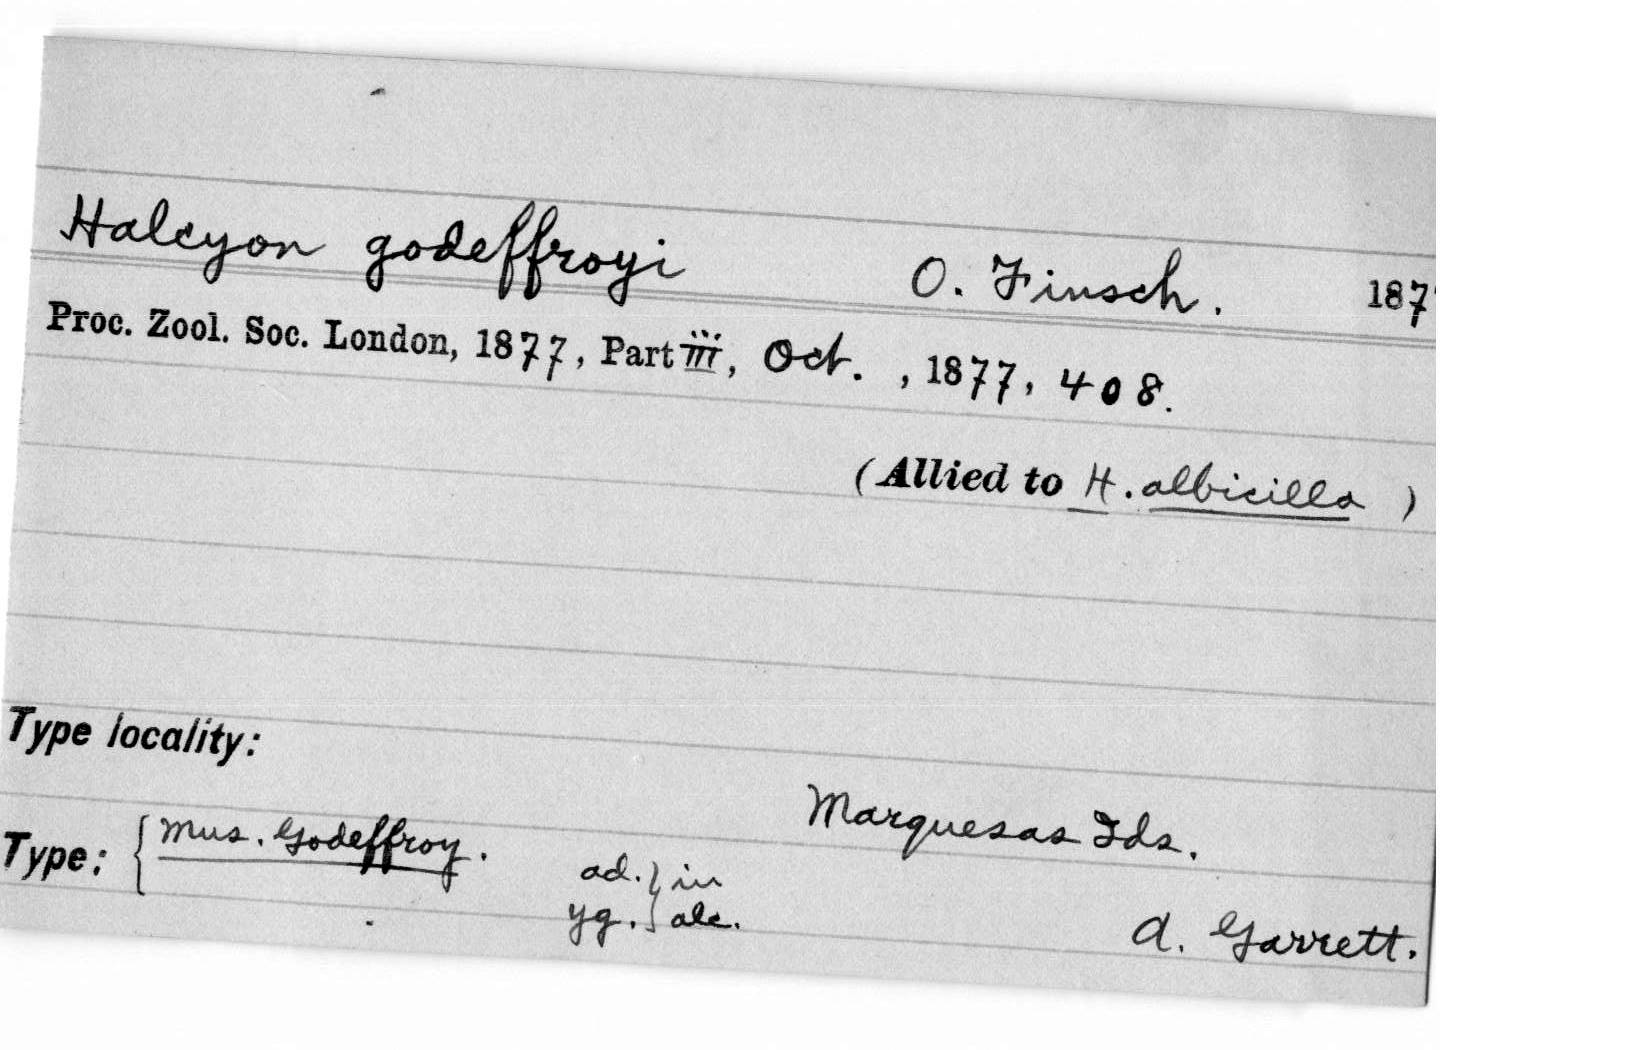 Halcyon godeffroyi O. Finsch. 187
Proc. Zool. Soc. London, 1877, Part iii, Oct. , 1877, 408.
(Allied to H. albicilla )
Type locality:
Marquesas Ids.
Type: { Mus. Godeffroy. ad. } in
yg. } alc.
A. Garrett.